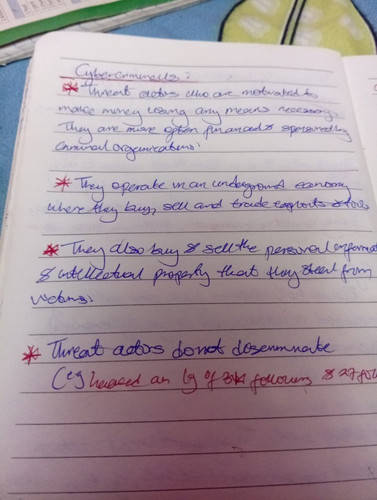 Cybercriminals:
* Threat actors who are motivated to
make money using any means necessary.
They are more often financed & sponsored by
criminal organizations.
* They operate in an underground economy
where they buy, sell and trade exploits & tools
* They also buy & sell the personal informat
& intellectual property that they steal from
victims.
* Threat actors do not deseminate
(eg hacked an ig of followers &